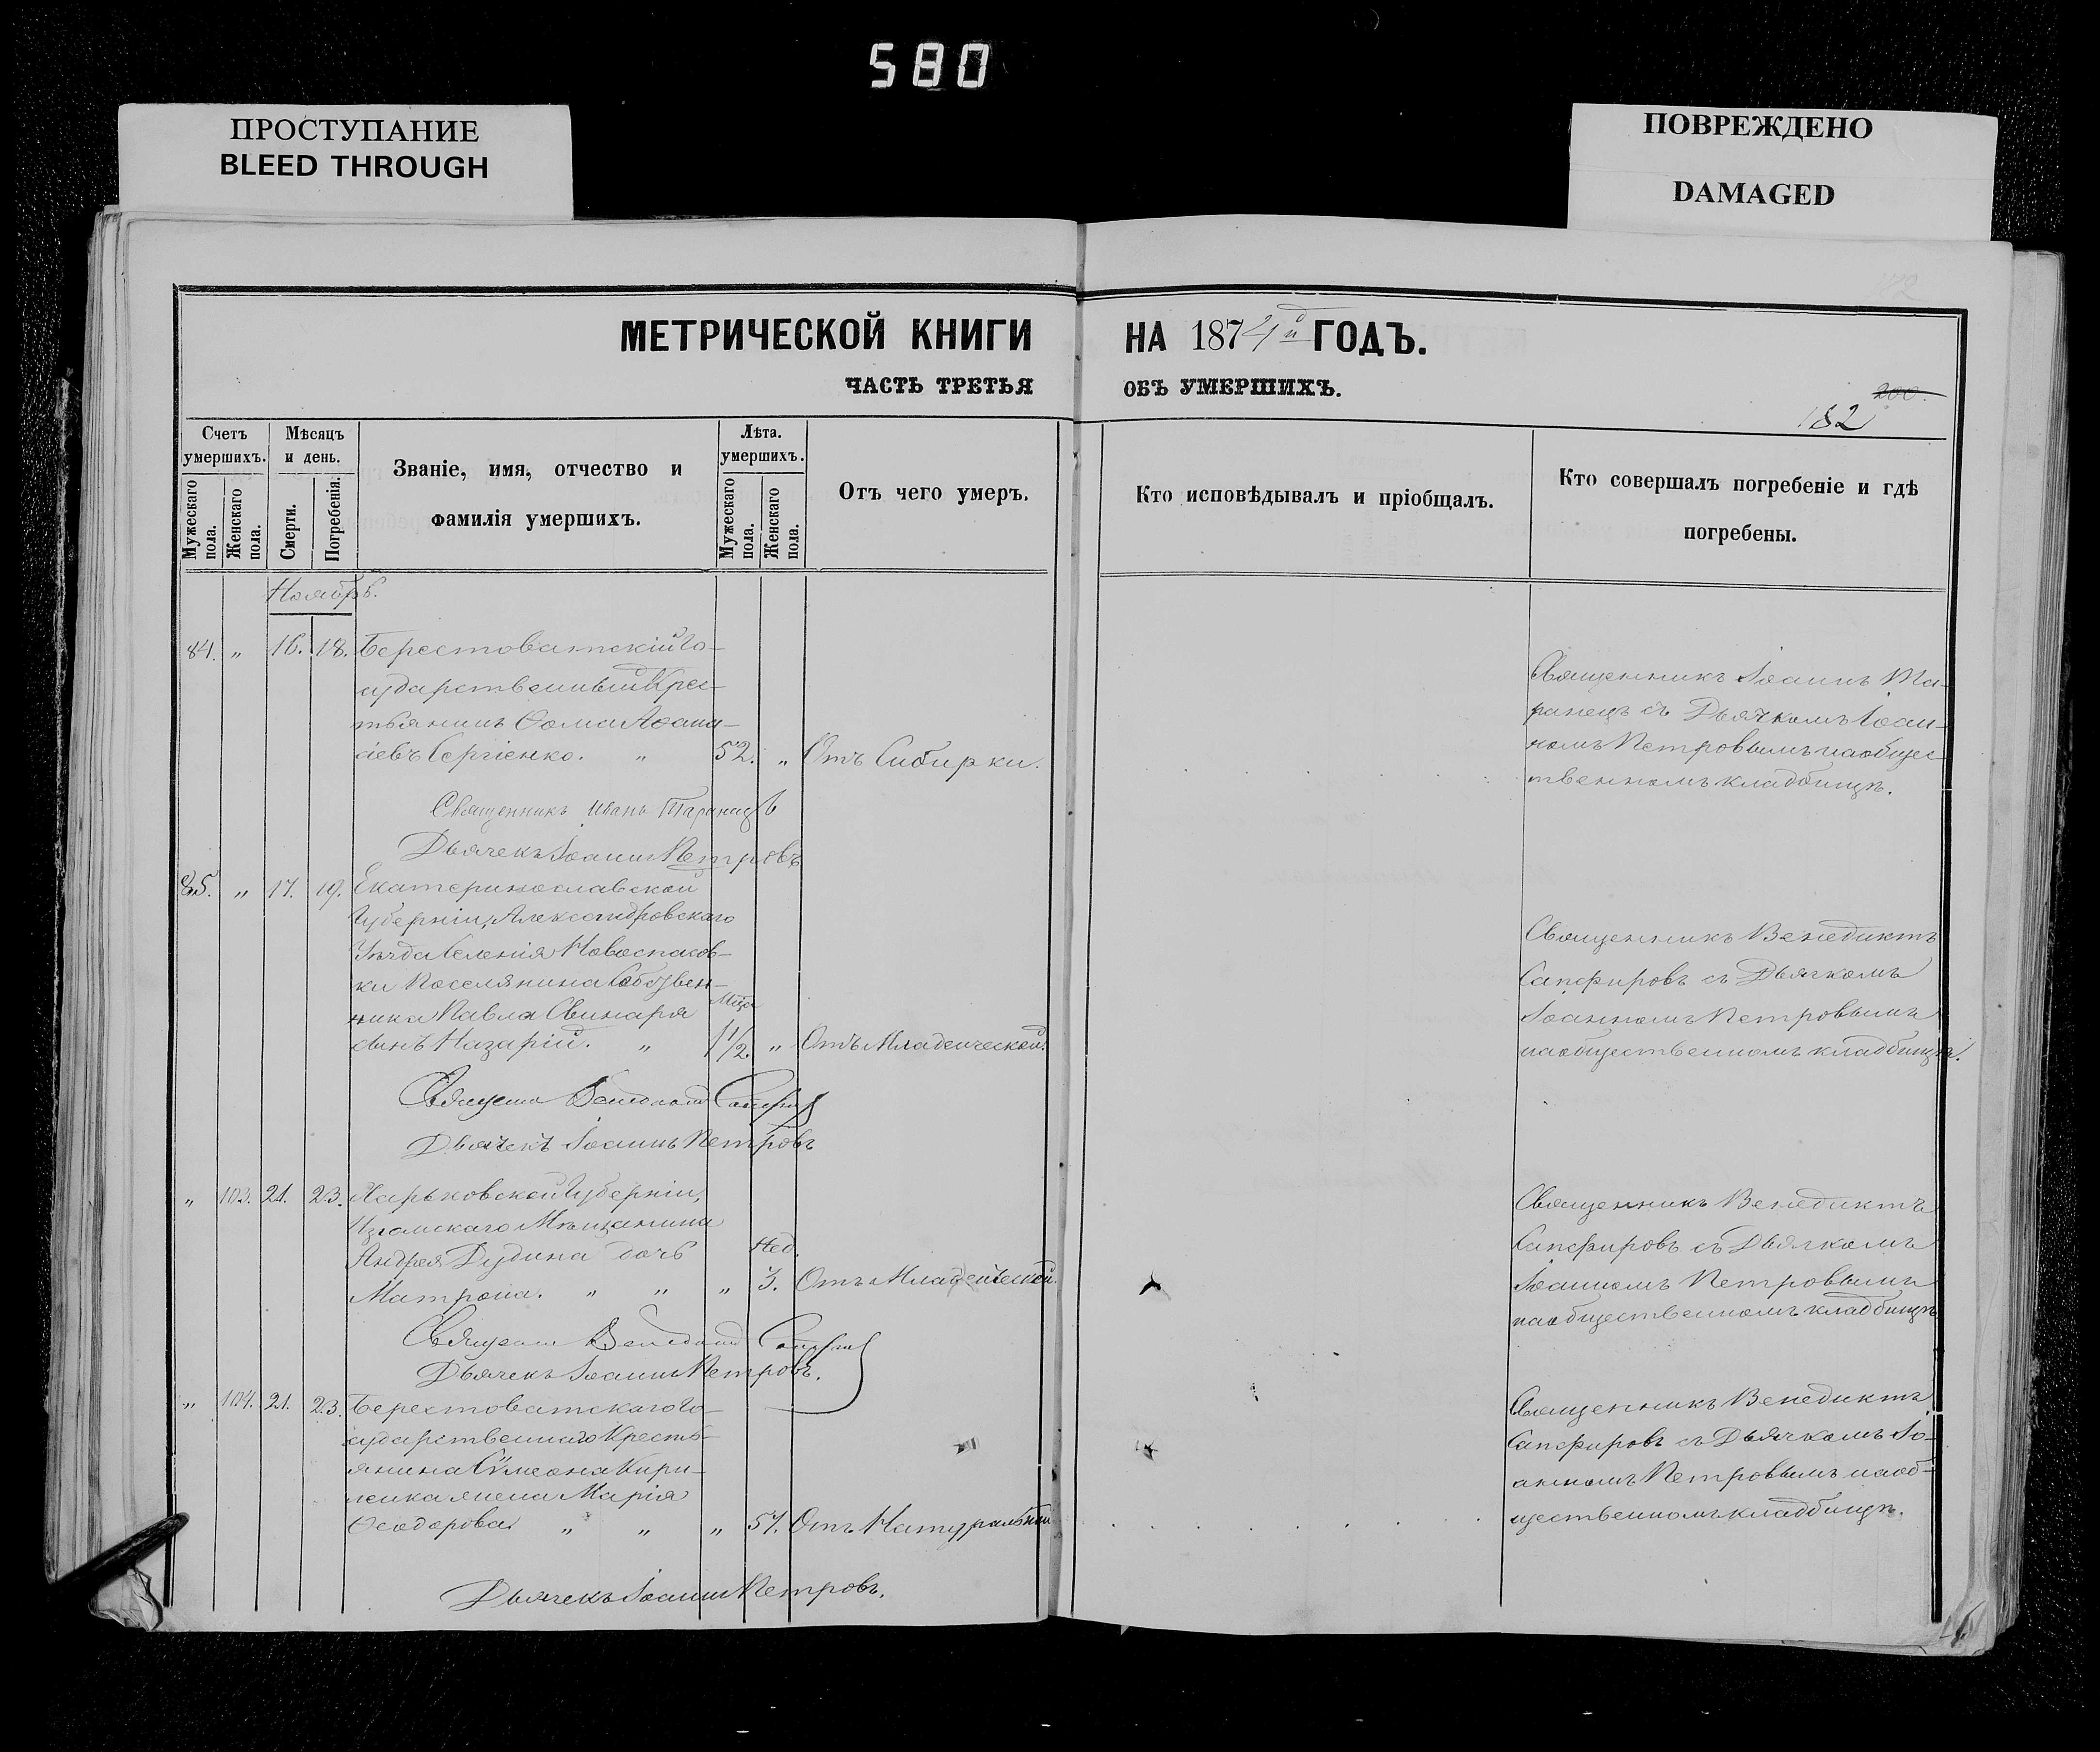 580
ПРОСТУПАНИЕ
BLEED THROUGH
ПОВРЕЖДЕНО
DAMAGED
МЕТРИЧЕСКОЙ КНИГИ НА 1874й ГОДЪ.
ЧАСТЬ ТРЕТЬЯ ОБЪ УМЕРШИХЪ.
200.
182
Счетъ умершихъ.
Мужескаго пола.
Женскаго пола.
Мѣсяцъ и день.
Смерти.
Погребенія.
Званіе, имя, отчество и
фамилія умершихъ.
Лѣта.
умершихъ.
Мужескаго пола.
Женскаго пола.
Отъ чего умеръ.
Кто исповѣдывалъ и пріобщалъ.
Кто совершалъ погребеніе и гдѣ
погребены.
Ноябрь.
84. „ 16. 18. Берестоватскій Го-
сударственный Крес-
тьянинъ Ѳома Аѳана-
сіевъ Сергіенко. „ 52. „ Отъ Сибирки.
Священникъ Іоаннъ Та-
ранецъ съ Дьячкомъ Іоан-
номъ Петровымъ на общес-
твенномъ кладбищѣ.
Священникъ Иванъ Таранецъ
Дьячекъ Іоаннъ Петровъ
85. „ 17. 19. Екатеринославской
Губерніи, Александровскаго
Уѣзда Селенія Новоспасов-
ки Поселянина Собствен-
ника Павла Свинаря
сынъ Назарій. „ 1 1/2. „ Отъ Младенческой.
Священникъ Венедиктъ
Сапфировъ съ Дьячкомъ
Іоанномъ Петровымъ
на общественномъ кладбищѣ.
Священ Венедикт Сапфир
Дьячекъ Іоаннъ Петровъ
„ 103. 21. 23. Харьковской Губерніи,
Изюмскаго Мѣщанина
Андрея Дудина дочь Нед.
Матрона. „ „ „ 3. Отъ Младенческой.
Священникъ Венедиктъ
Сапфировъ съ Дьячкомъ
Іоанномъ Петровымъ
на общественномъ кладбищѣ
Священ Венедикт Сапфир
Дьячекъ Іоаннъ Петровъ.
„ 104. 21. 23. Берестоватскаго Го-
сударственнаго Кресть-
янина Сѵмеона Кири-
ленка жена Марія
Ѳеодорова. „ „ „ 57. Отъ Натуральной
Священникъ Венедиктъ
Сапфировъ съ Дьячкомъ Іо-
анномъ Петровымъ на об-
щественномъ кладбищѣ.
Дьячекъ Іоаннъ Петровъ.